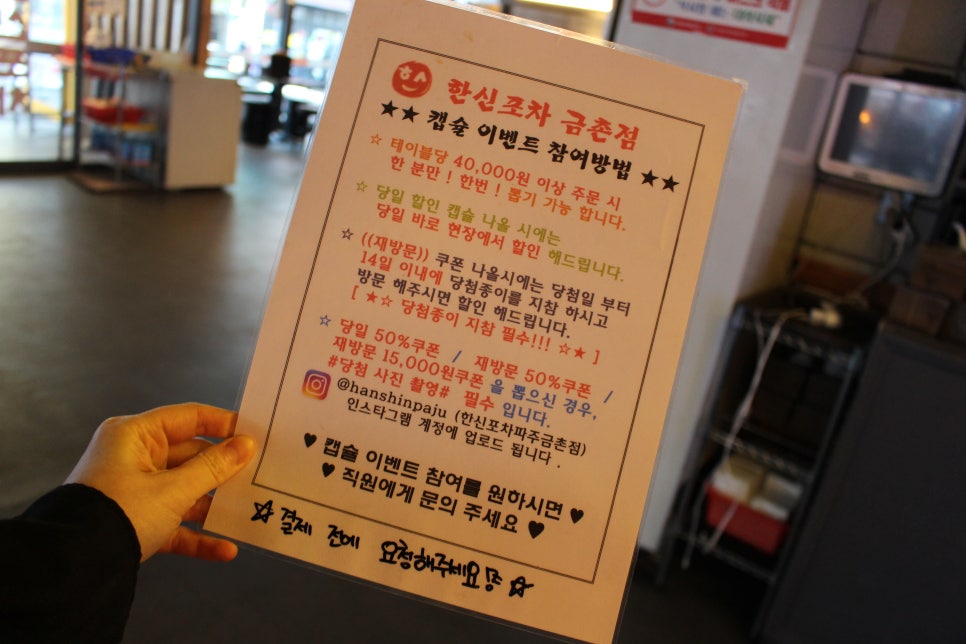 한신포차 금촌점
★★ 캡슐 이벤트 참여방법 ★★
☆ 테이블당 40,000원 이상 주문 시
한 분만 ! 한번 ! 뽑기 가능 합니다.
☆ 당일 할인 캡슐 나올 시에는
당일 바로 현장에서 할인 해드립니다.
☆ ((재방문)) 쿠폰 나올시에는 당첨일 부터
14일 이내에 당첨종이를 지참 하시고
방문 해주시면 할인 해드립니다.
[ ★☆ 당첨종이 지참 필수!!! ☆★ ]
☆ 당일 50%쿠폰 / 재방문 50%쿠폰 /
재방문 15,000원쿠폰 을 뽑으신 경우,
#당첨 사진 촬영# 필수 입니다.
@hanshinpaju (한신포차파주금촌점)
인스타그램 계정에 업로드 됩니다 .
♥ 캡슐 이벤트 참여를 원하시면 ♥
♥ 직원에게 문의 주세요 ♥
☆ 결제 전에 요청해주세요 ☆